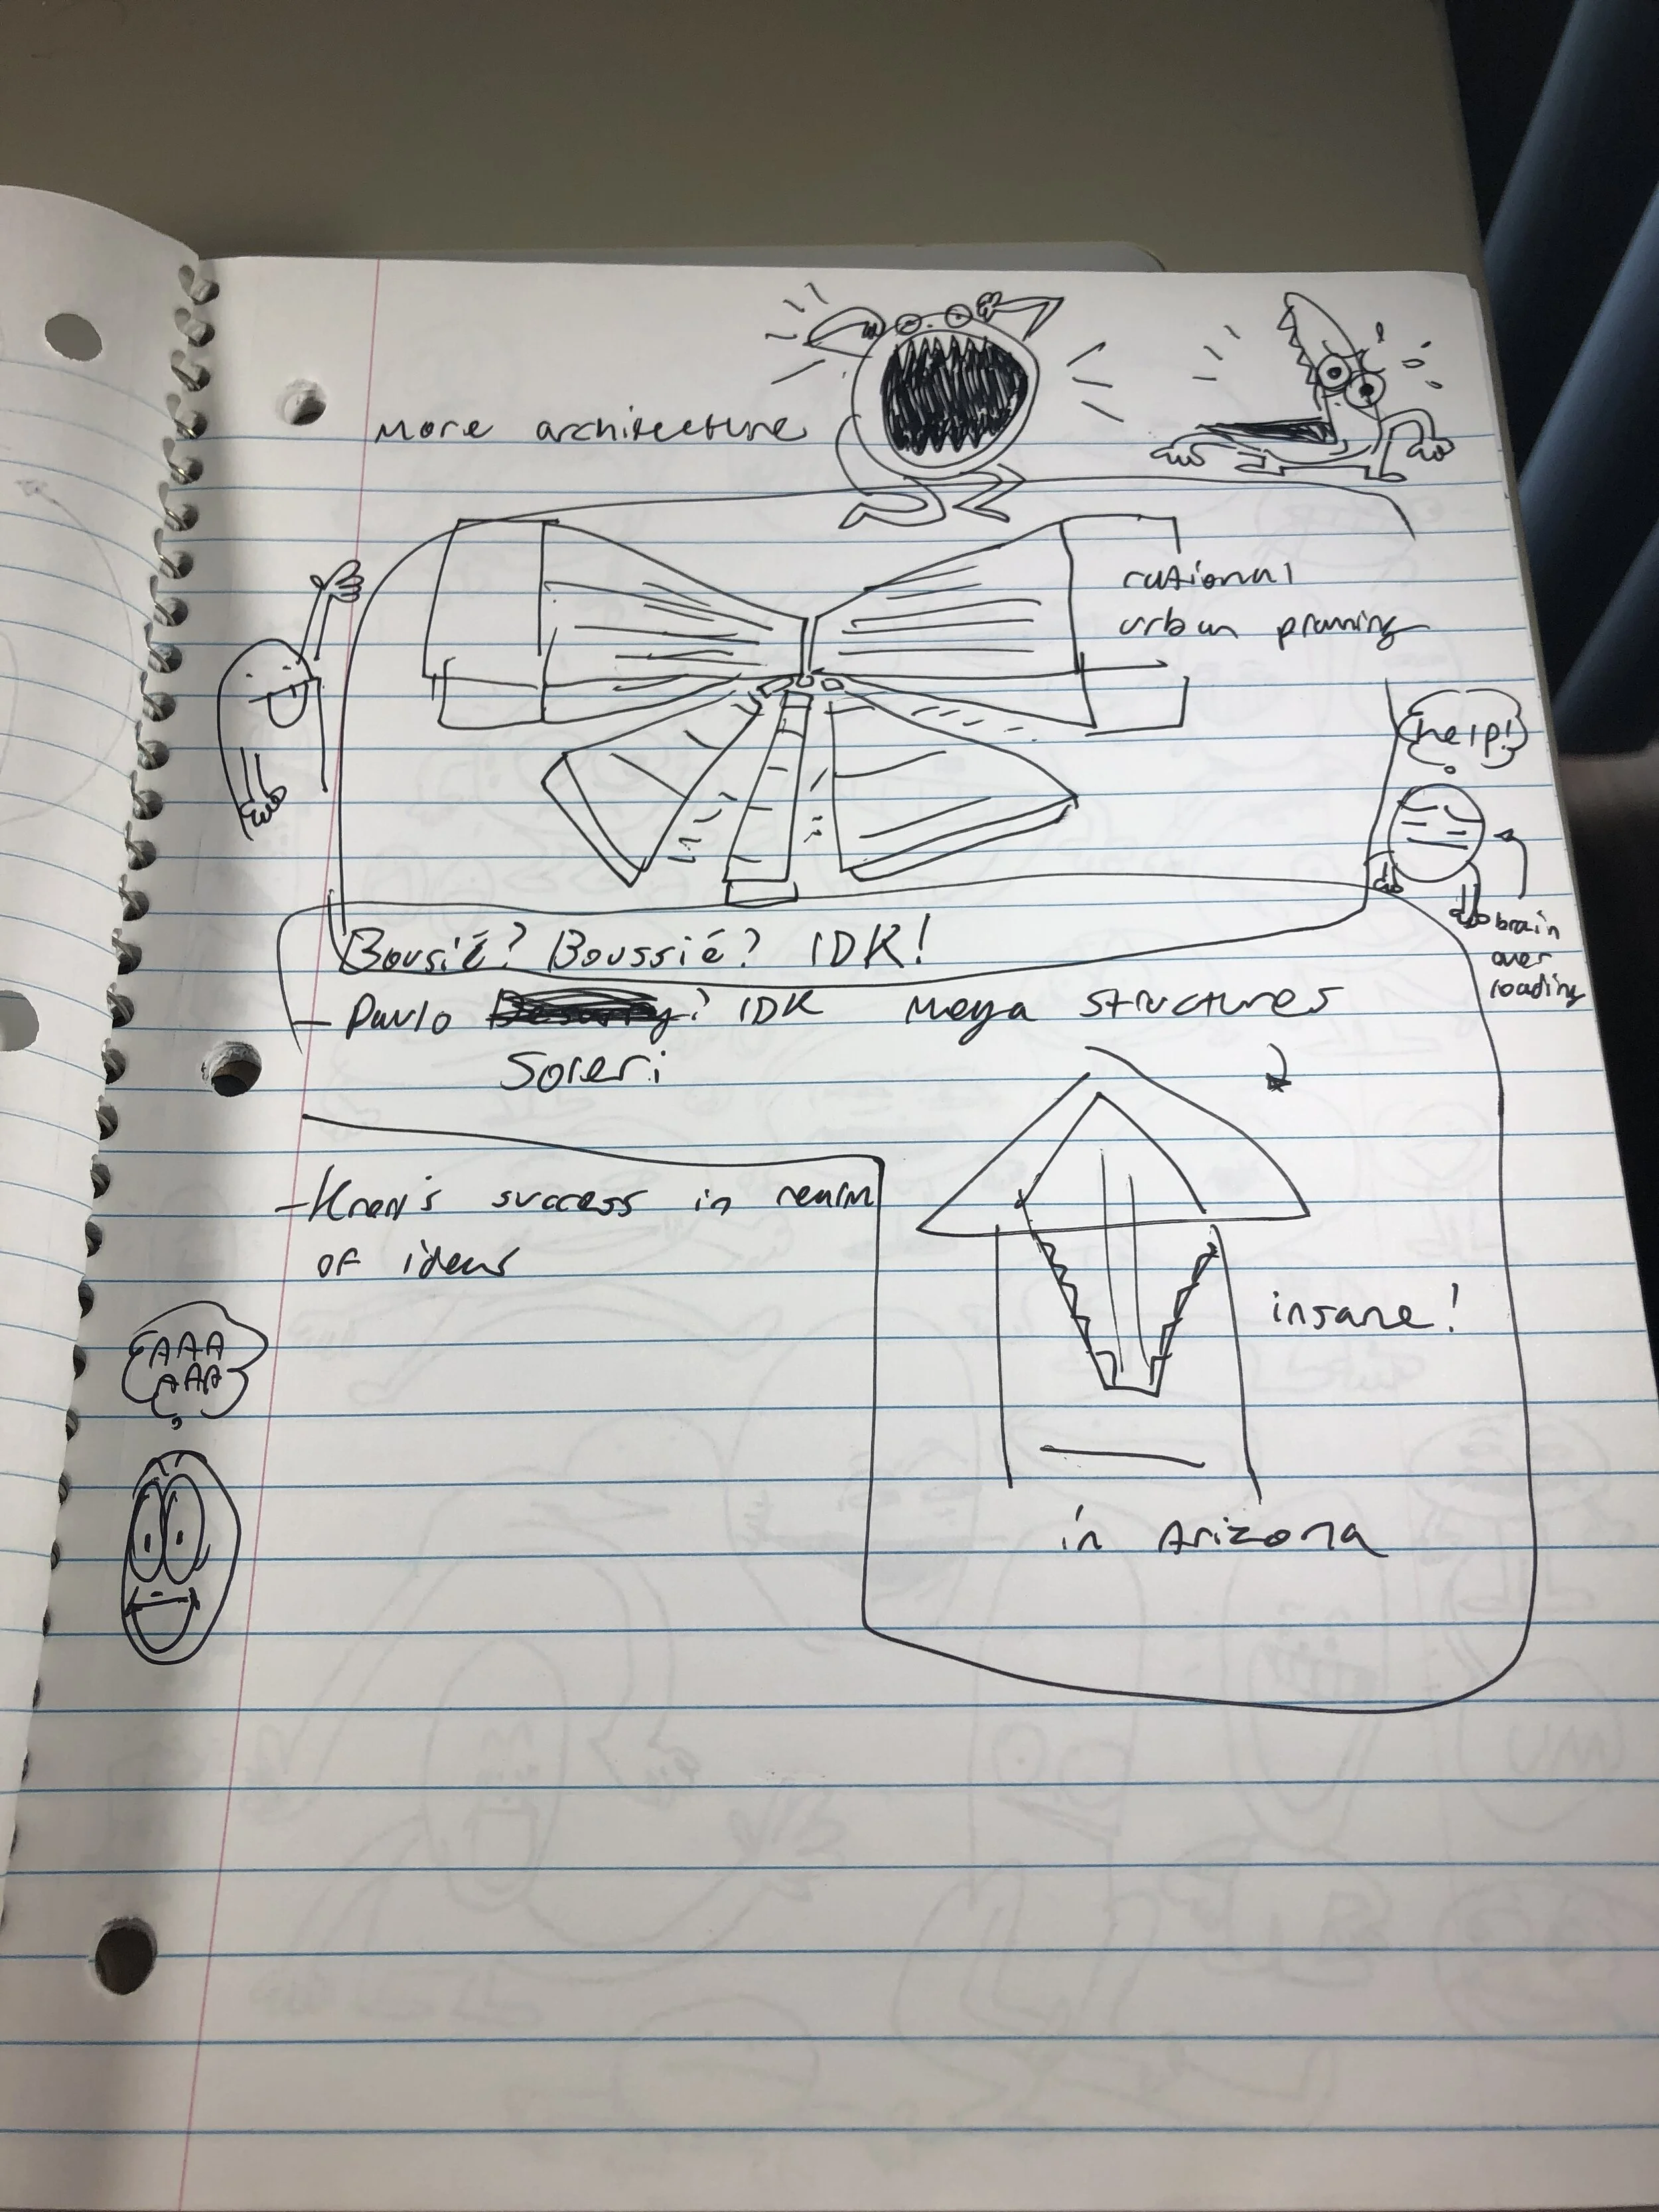 More architecture
rational
urban planning
help!
brain
over
loading
Bousié? Boussié? IDK!
- Paulo ? IDK Mega structures
Soleri
- success in realm
of ideas
AAA
AAA
insane!
in Arizona